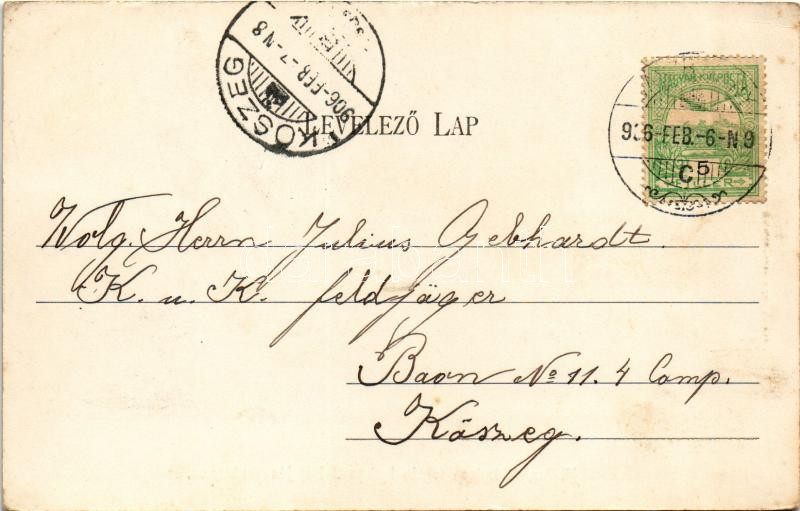 KŐSZEG
906-FEB.-7-N8
LEVELEZŐ LAP
MAGYAR KIR. POSTA
936-FEB.-6-N9
C
5
Wolg. Herrn Julius Gebhardt.
K. u. K. feldjäger
Baon No 11. 4 Comp.
Kőszeg.